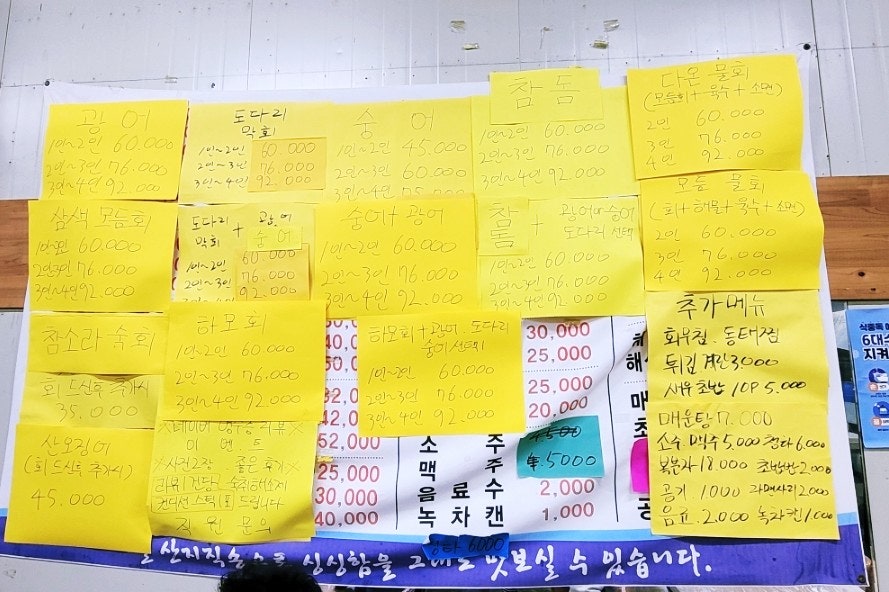 광어
1인~2인 60.000
2인~3인 76.000
3인~4인 92.000
도다리
막회
1인~2인 60.000
2인~3인 76.000
3인~4인 92.000
숭어
1인~2인 45.000
2인~3인 60.000
3인~4인
참돔
1인~2인 60.000
2인~3인 76.000
3인~4인 92.000
다온 물회
(모듬회+육수+소면)
2인 60.000
3인 76.000
4인 92.000
삼색 모듬회
1인~2인 60.000
2인~3인 76.000
3인~4인 92.000
도다리 막회 + 광어 숭어
1인~2인 60.000
2인~3인 76.000
3인~4인 92.000
숭어+광어
1인~2인 60.000
2인~3인 76.000
3인~4인 92.000
참돔 + 광어or숭어
도다리 선택
1인~2인 60.000
2인~3인 76.000
3인~4인 92.000
모듬 물회
(회+해물+육수+소면)
2인 60.000
3인 76.000
4인 92.000
참소라 숙회
회 드신후 추가시
35.000
하모회
1인~2인 60.000
2인~3인 76.000
3인~4인 92.000
하모회+광어, 도다리
숭어 선택
1인~2인 60.000
2인~3인 76.000
3인~4인 92.000
추가메뉴
회무침. 동태찜
튀김 계란 3000
새우초밥 10P 5.000
매운탕 7.000
소주 맥주 5,000 청하 6.000
복분자 18.000 초밥밥 2.000
공기 1.000 라면사리 2000
음료 2.000 녹차캔 1.000
산오징어
(회 드신후 추가시)
45.000
이벤트
직원문의
52,000
25,000
30,000
40,000
30,000
25,000
20,000
소주
5000
맥주
음료수 2,000
녹차캔 1,000
청하 6000
싱싱함을 그대로 맛보실 수 있습니다.
식중독 예
6대수
지켜